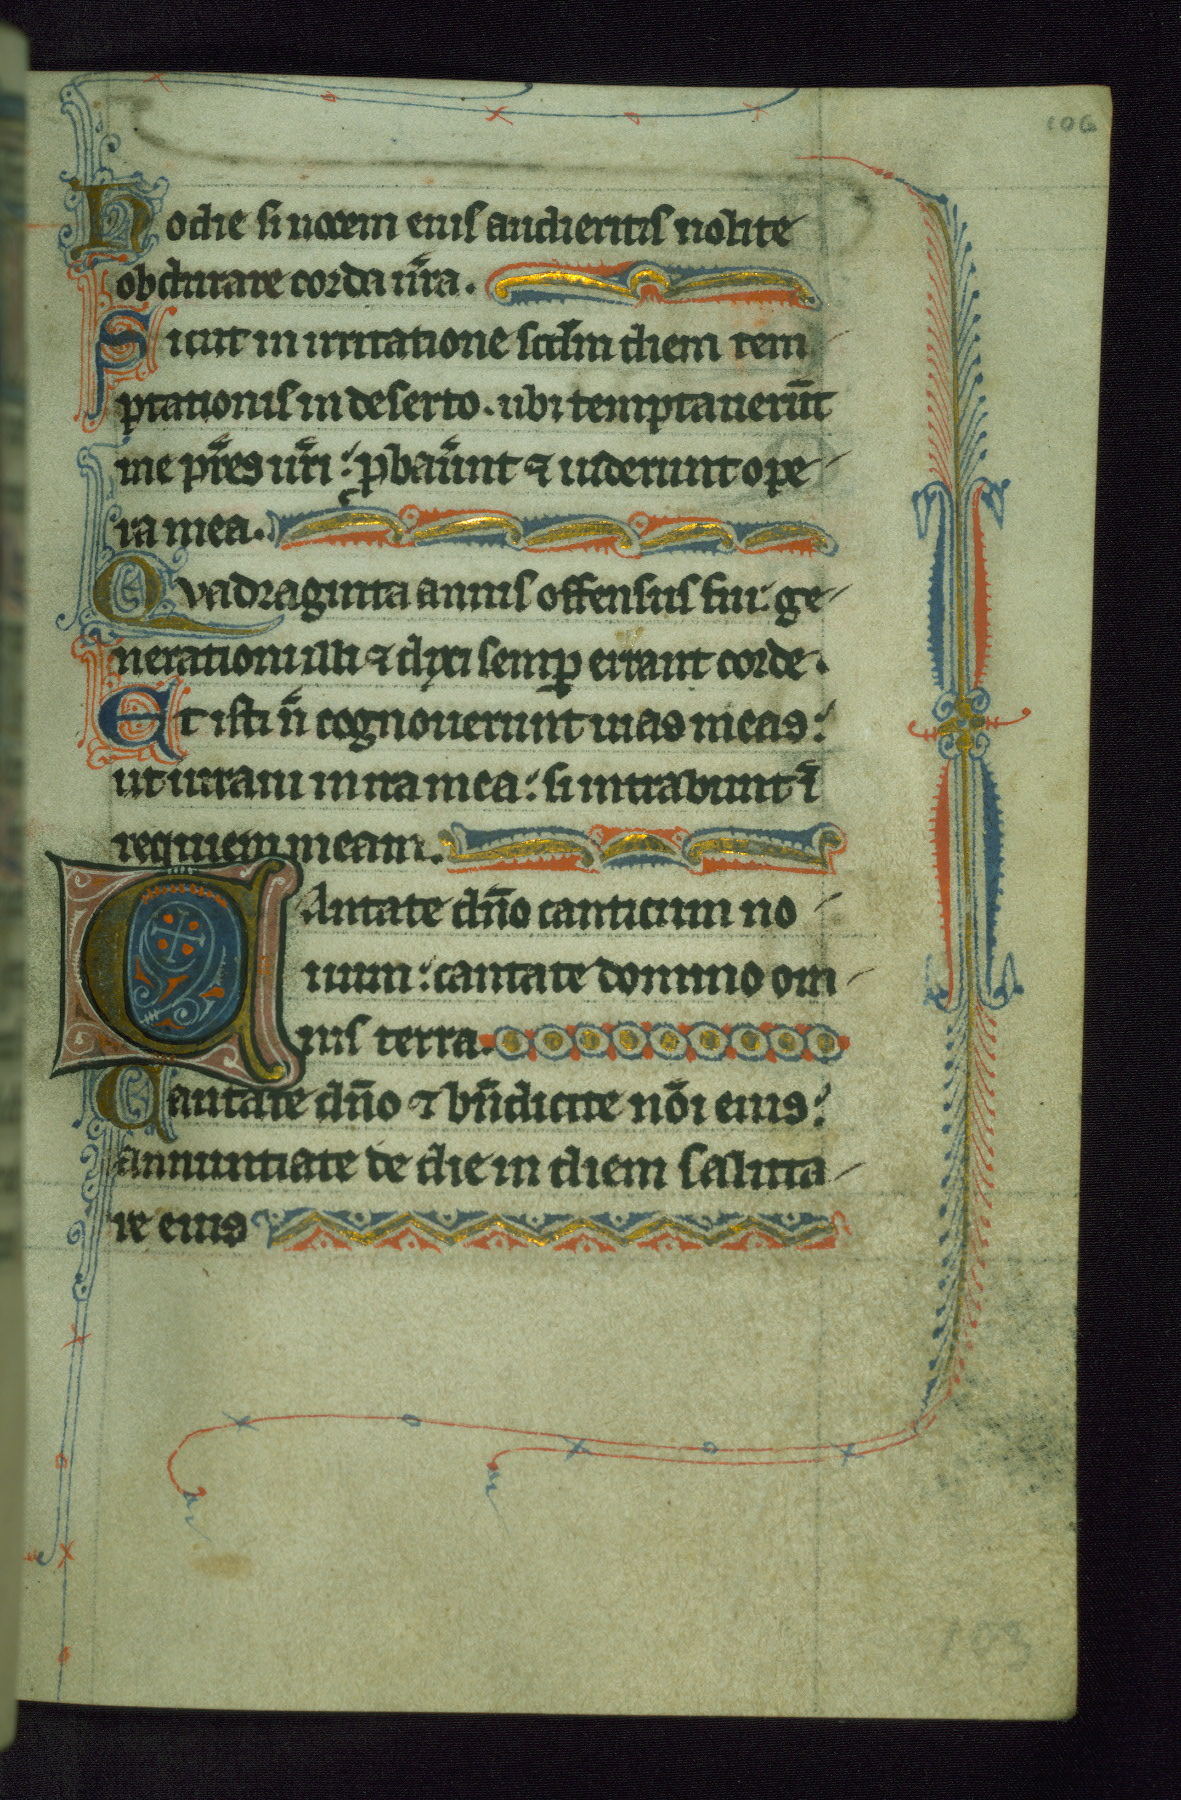 106
Hodie si uocem eius audieritis nolite
obdurare corda ur̄a.
Sicut in irritatione scd̄m diem tem
ptationis in deserto. ubi temptauerūt
me pr̄es ur̄i: p̱baū̄nt ⁊ uiderunt ope
ra mea.
Quadraginta annis offensus fui: ge
nerationi illi ⁊ dixi semꝑ errant corde.
Et isti n̄ cognouerunt uias meas:
ut iuraui in ira mea: si intrabunt ī
requiem meam.
Cantate dn̄o canticum no
uum: cantate domino om
nis terra.
Cantate dn̄o ⁊ bn̄dicite nōi eius:
annuntiate de die in diem saluta
re eius
103